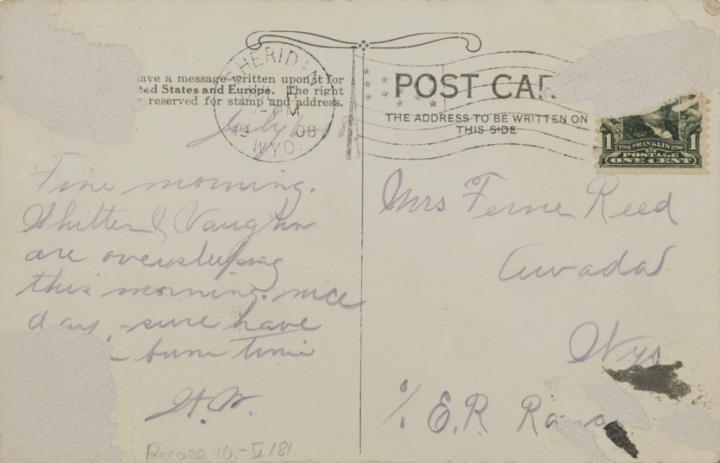 ave a message written upon it for
ted States and Europe. The right
reserved for stamp and address.
SHERIDAN
PM
19 08
WYO.
July
Fine morning.
Whitten & Vaughn
are oversleeping
this morning. nice
day, - sure have
- bum time
H.W.
POST CAR
THE ADDRESS TO BE WRITTEN ON
THIS SIDE
1 1
FRANKLIN
POSTAGE
ONE CENT
Mrs Ferne Reed
Arvada
Wyo
% E.R. Ranc